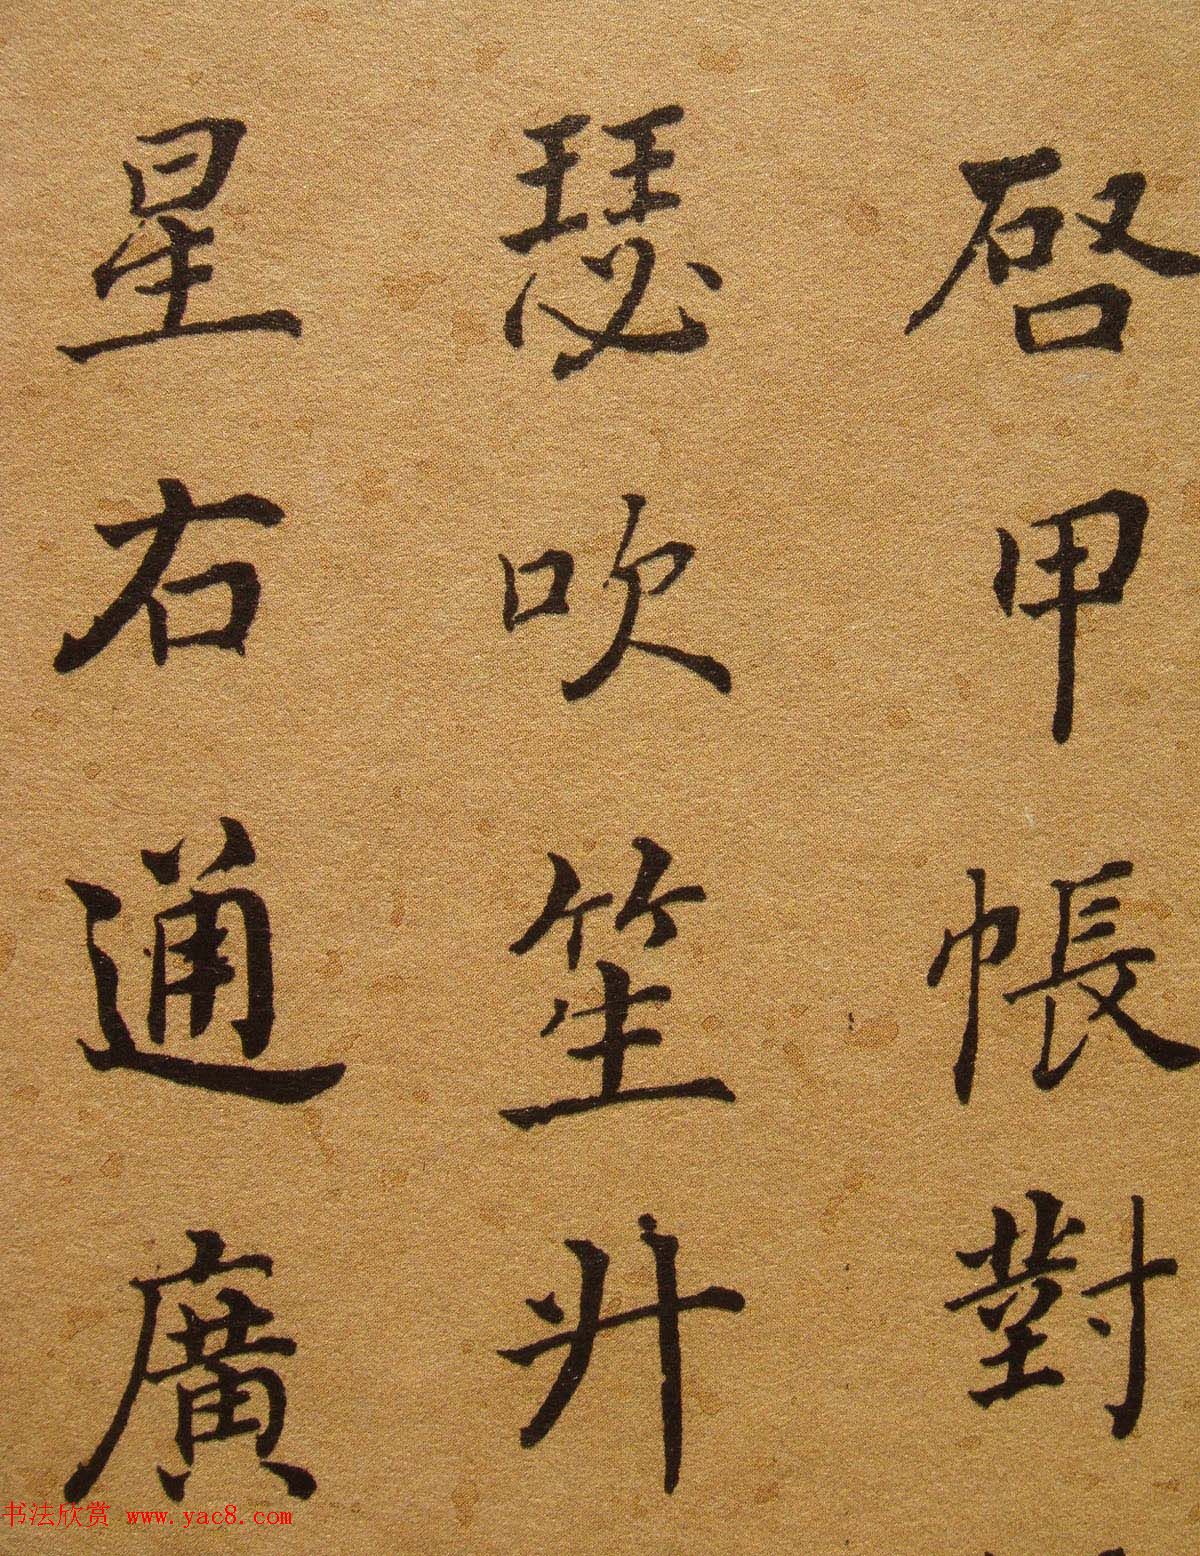 啓甲帳對
瑟吹笙升
星右通廣
书法欣赏 www.yac8.com